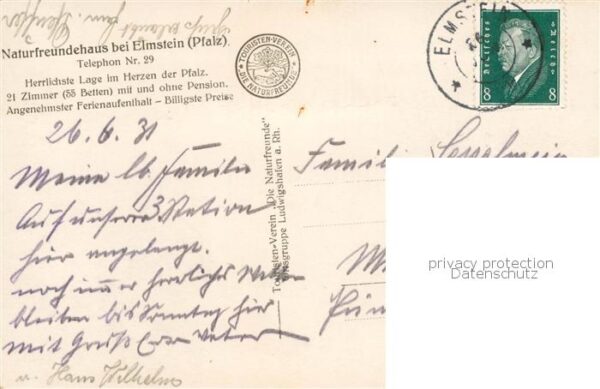 Naturfreundehaus bei Elmstein (Pfalz)
Telephon Nr. 29
Herrlichste Lage im Herzen der Pfalz.
21 Zimmer (55 Betten) mit und ohne Pension.
Angenehmster Ferienaufenthalt – Billigste Preise
TOURISTEN-VEREIN
DIE NATURFREUNDE
ELMSTEIN
Deutsches Reich
8 8
26.6.31
Meine lb. Familie
Auf unserer 3 Station
hier angelangt.
noch immer herrliches Wetter
bleiben bis Sonntag hier
mit Gruß Euer Vater
u. Hans Wilhelm
Touristen-Verein „Die Naturfreunde"
Ortsgruppe Ludwigshafen a. Rh.
Familie
privacy protection
Datenschutz